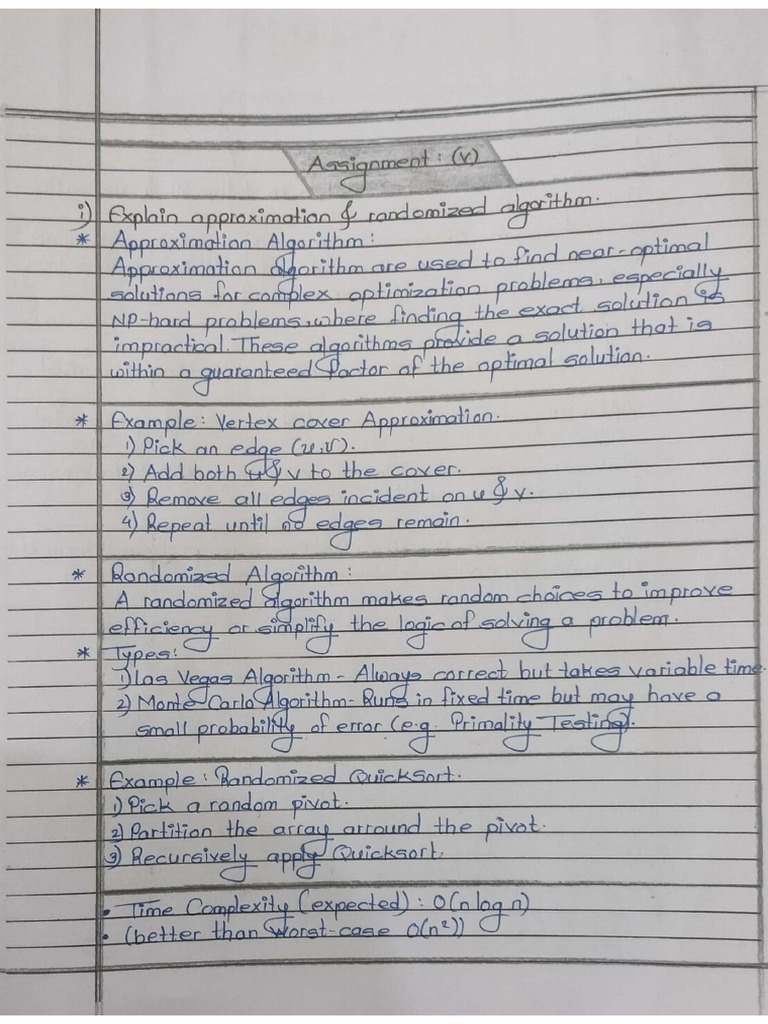 Assignment : (V)
i) Explain approximation & randomized algorithm.
* Approximation Algorithm :
Approximation algorithm are used to find near-optimal
solutions for complex optimization problems, especially
NP-hard problems, where finding the exact solution is
impractical. These algorithms provide a solution that is
within a guaranteed factor of the optimal solution.
* Example : Vertex cover Approximation.
1) Pick an edge (u,v).
2) Add both u & v to the cover.
3) Remove all edges incident on u & v.
4) Repeat until no edges remain.
* Randomized Algorithm :
A randomized algorithm makes random choices to improve
efficiency or simplify the logic of solving a problem.
* Types :
1) Las Vegas Algorithm - Always correct but takes variable time.
2) Monte Carlo Algorithm - Runs in fixed time but may have a
small probability of error (e.g. Primality Testing).
* Example : Randomized Quicksort.
1) Pick a random pivot.
2) Partition the array arround the pivot.
3) Recursively apply Quicksort.
• Time Complexity (expected) : O(n log n)
• (better than worst-case O(n²))